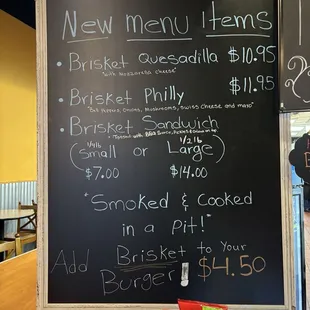 New Menu Items
• Brisket Quesadilla $10.95
"with mozzarella cheese"
$11.95
• Brisket Philly
"Bell Peppers, Onions, Mushrooms, Swiss Cheese and mayo"
• Brisket Sandwich
"Topped with BBQ Sauce,
1/4 lb 1/2 lb
(Small or Large)
$7.00 $14.00
"Smoked & Cooked
in a Pit!"
Add Brisket to Your
Burger! $4.50